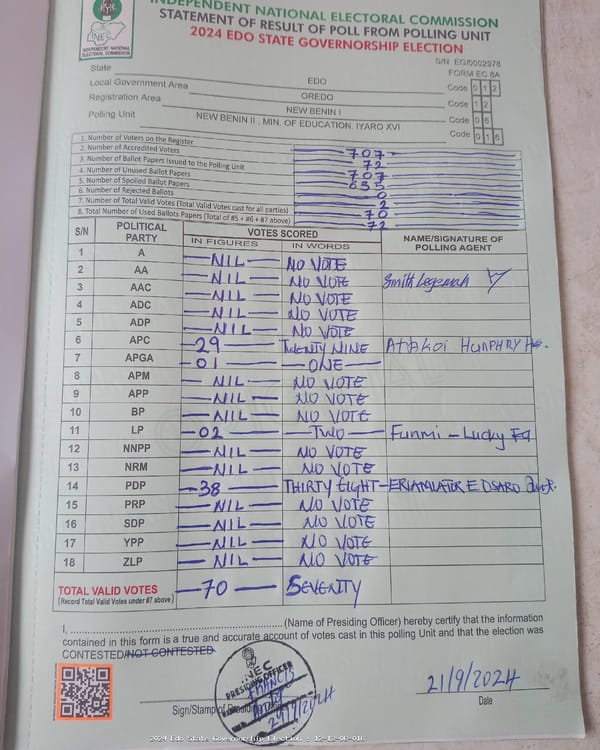 INDEPENDENT NATIONAL ELECTORAL COMMISSION
STATEMENT OF RESULT OF POLL FROM POLLING UNIT
2024 EDO STATE GOVERNORSHIP ELECTION
INEC
INDEPENDENT NATIONAL ELECTORAL COMMISSION
S/N: EG/0002978
FORM EC 8A
State EDO
Local Government Area OREDO Code 0 1 2
Registration Area NEW BENIN I Code 1 2
Polling Unit NEW BENIN II , MIN. OF EDUCATION. IYARO XVI Code 0 6
Code 0 1 6
1. Number of Voters on the Register 707
2. Number of Accredited Voters 72
3. Number of Ballot Papers Issued to the Polling Unit 707
4. Number of Unused Ballot Papers 635
5. Number of Spoiled Ballot Papers 0
6. Number of Rejected Ballots 2
7. Number of Total Valid Votes (Total Valid Votes cast for all parties) 70
8. Total Number of Used Ballots Papers (Total of #5 + #6 + #7 above) 72
S/N POLITICAL PARTY VOTES SCORED NAME/SIGNATURE OF POLLING AGENT
IN FIGURES IN WORDS
1 A NIL NO VOTE
2 AA NIL NO VOTE
3 AAC NIL NO VOTE Smith
4 ADC NIL NO VOTE
5 ADP NIL NO VOTE
6 APC 29 TWENTY NINE HUMPHRY
7 APGA 01 ONE
8 APM NIL NO VOTE
9 APP NIL NO VOTE
10 BP NIL NO VOTE
11 LP 02 TWO Funmi - Lucky
12 NNPP NIL NO VOTE
13 NRM NIL NO VOTE
14 PDP 38 THIRTY EIGHT
15 PRP NIL NO VOTE
16 SDP NIL NO VOTE
17 YPP NIL NO VOTE
18 ZLP NIL NO VOTE
TOTAL VALID VOTES 70 SEVENTY
(Record Total Valid Votes under #7 above)
I, .......... (Name of Presiding Officer) hereby certify that the information
contained in this form is a true and accurate account of votes cast in this polling Unit and that the election was
CONTESTED/NOT CONTESTED
INEC
PRESIDING OFFICER
FRANCIS
21/9/2024
Sign/Stamp of Presid
21/9/2024
Date
2024 Edo State Governorship Election - 12-12-06-016